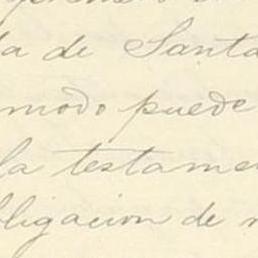 da de Santa
modo puede
la testame
bligacion de